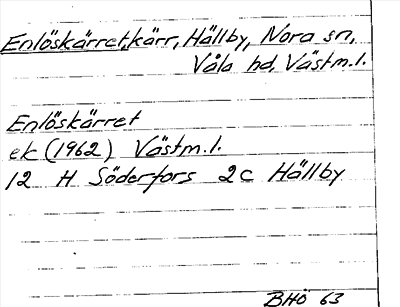 Enlöskärret, kärr, Hällby, Nora sn,
Våla hd, Västm.l.
Enlöskärret
ek (1962) Västm.l.
12 H Söderfors 2c Hällby
BHÖ 63